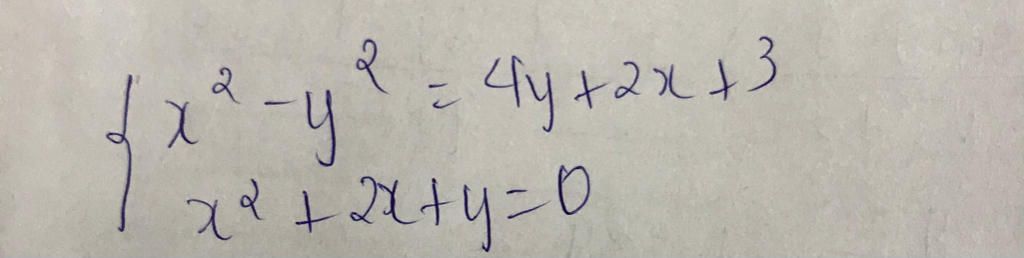 x² - y² = 4y + 2x + 3
x² + 2x + y = 0